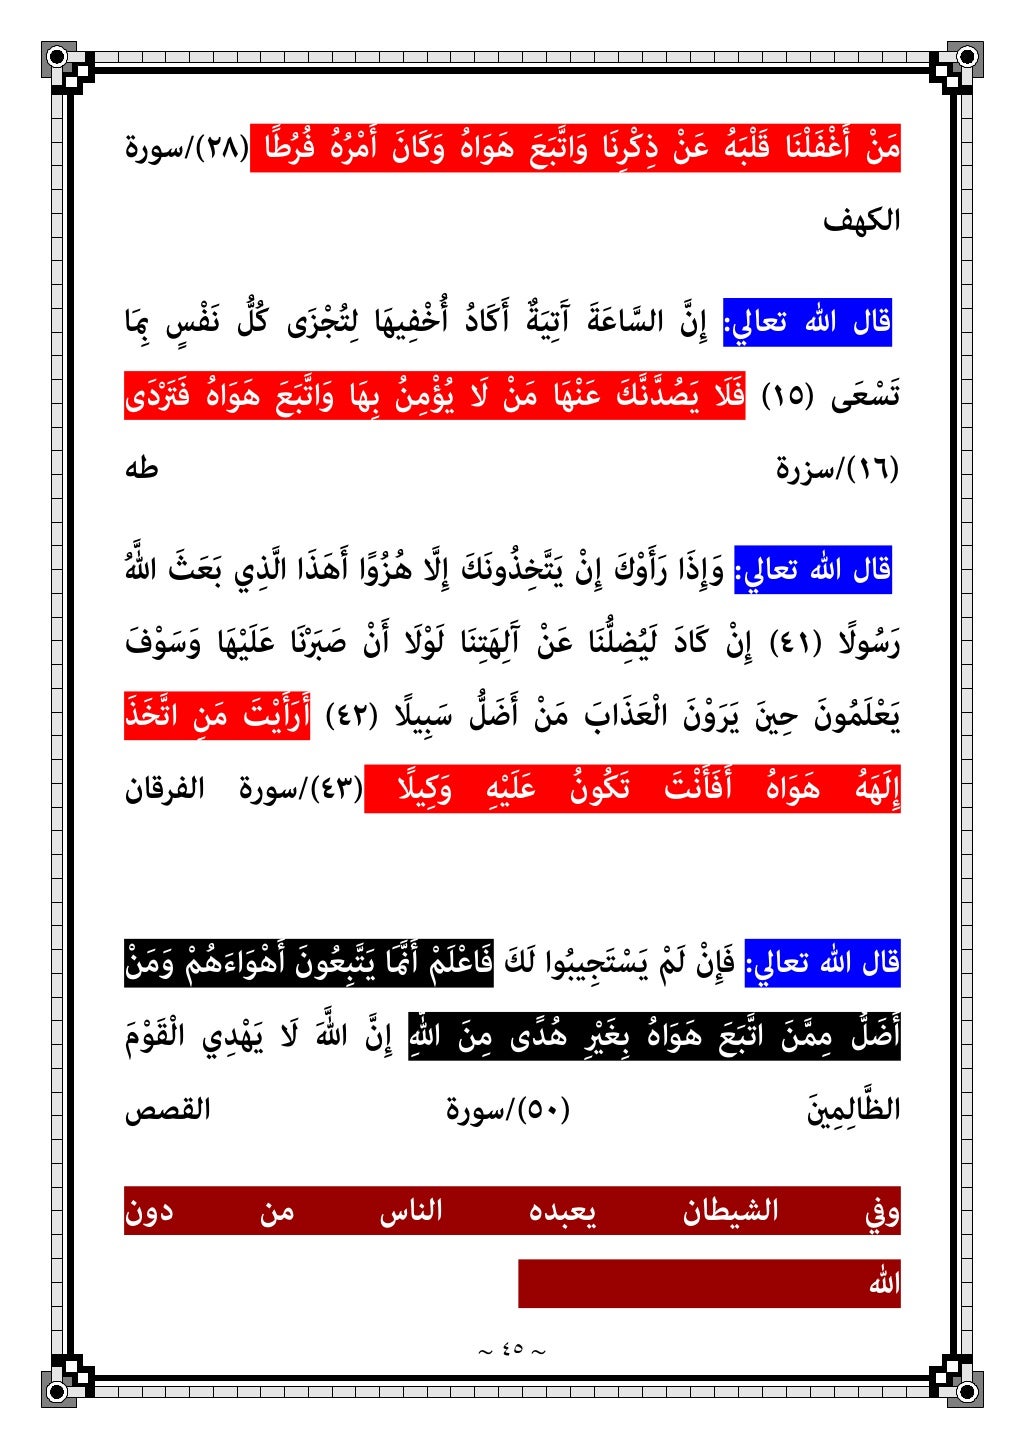 مَنْ أَغْفَلْنَا قَلْبَهُ عَنْ ذِكْرِنَا وَاتَّبَعَ هَوَاهُ وَكَانَ أَمْرُهُ فُرُطًا (٢٨)/سورة
الكهف
قال الله تعالي: إِنَّ السَّاعَةَ آَتِيَةٌ أَكَادُ أُخْفِيهَا لِتُجْزَى كُلُّ نَفْسٍ بِمَا
تَسْعَى (١٥) فَلَا يَصُدَّنَّكَ عَنْهَا مَنْ لَا يُؤْمِنُ بِهَا وَاتَّبَعَ هَوَاهُ فَتَرْدَى
(١٦)/سزرة طه
قال الله تعالي: وَإِذَا رَأَوْكَ إِنْ يَتَّخِذُونَكَ إِلَّا هُزُوًا أَهَذَا الَّذِي بَعَثَ اللَّهُ
رَسُولًا (٤١) إِنْ كَادَ لَيُضِلُّنَا عَنْ آَلِهَتِنَا لَوْلَا أَنْ صَبَرْنَا عَلَيْهَا وَسَوْفَ
يَعْلَمُونَ حِينَ يَرَوْنَ الْعَذَابَ مَنْ أَضَلُّ سَبِيلًا (٤٢) أَرَأَيْتَ مَنِ اتَّخَذَ
إِلَهَهُ هَوَاهُ أَفَأَنْتَ تَكُونُ عَلَيْهِ وَكِيلًا (٤٣)/سورة الفرقان
قال الله تعالي: فَإِنْ لَمْ يَسْتَجِيبُوا لَكَ فَاعْلَمْ أَنَّمَا يَتَّبِعُونَ أَهْوَاءَهُمْ وَمَنْ
أَضَلُّ مِمَّنَ اتَّبَعَ هَوَاهُ بِغَيْرِ هُدًى مِنَ اللهِ إِنَّ اللَّهَ لَا يَهْدِي الْقَوْمَ
الظَّالِمِينَ (٥٠)/سورة القصص
وفي الشيطان يعبده الناس من دون
الله
~ ٤٥ ~